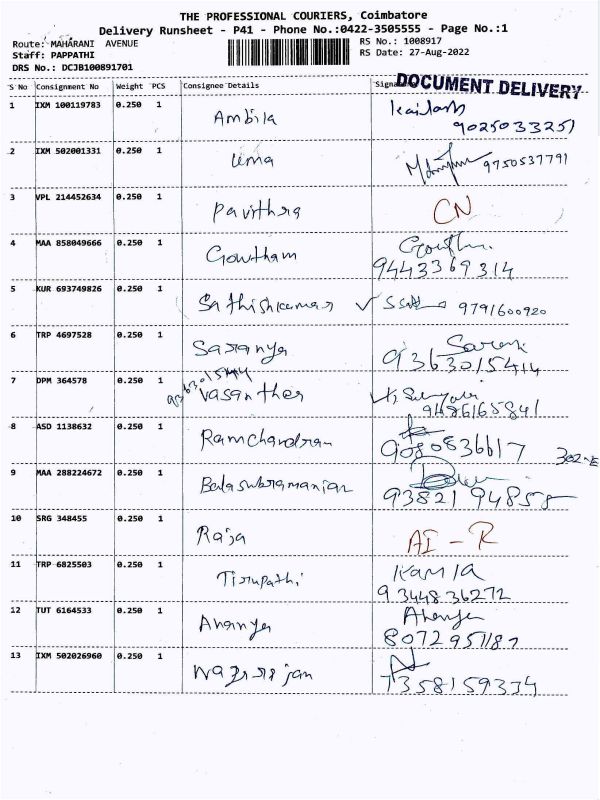 THE PROFESSIONAL COURIERS, Coimbatore
Delivery Runsheet - P41 - Phone No.:0422-3505555 - Page No.:1
Route: MAHARANI AVENUE
RS No.: 1008917
Staff: PAPPATHI
RS Date: 27-Aug-2022
DRS No.: DCJB100891701
S No Consignment No Weight PCS Consignee Details
DOCUMENT DELIVERY
1 IXM 100119783 0.250 1 Ambila Kailash
9025033251
2 IXM 502001331 0.250 1 Uma 9750537791
3 VPL 214452634 0.250 1 Pavithra CN
4 MAA 858049666 0.250 1 Gowtham
9443369314
5 KUR 693749826 0.250 1 Sathishkumar 9791600920
6 TRP 4697528 0.250 1 Saranya
9363015414
7 DPM 364578 0.250 1 Vasantha
9486165841
8 ASD 1138632 0.250 1 Ramchandran 9080836617
9 MAA 288224672 0.250 1 Balasubramanian
9382194858
10 SRG 348455 0.250 1 Raja AI - R
11 TRP 6825503 0.250 1 Tirupathi Kamla
9344836272
12 TUT 6164533 0.250 1 Ananya Ananya
8072951187
13 IXM 502026960 0.250 1 Nagarajan
7358159334